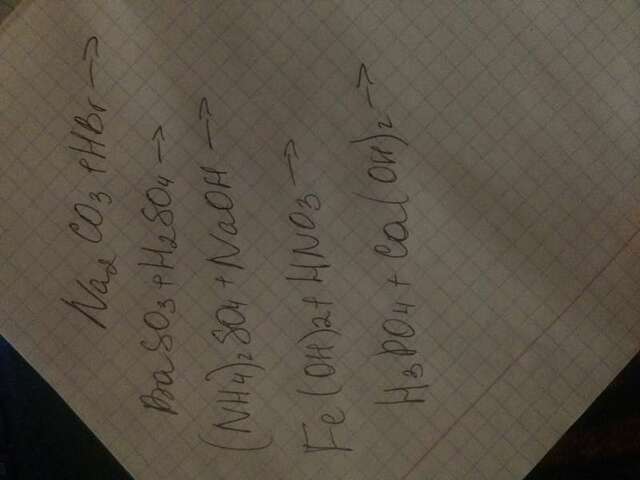 Na2CO3 + HBr →
BaSO3 + H2SO4 →
(NH4)2SO4 + NaOH →
Fe(OH)2 + HNO3 →
H3PO4 + Ca(OH)2 →